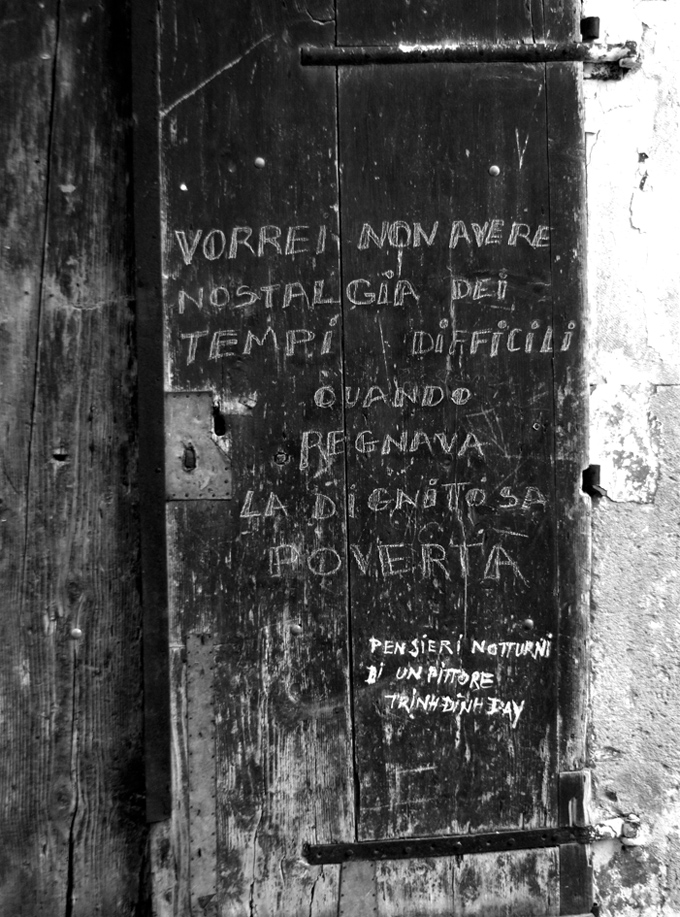 VORREI NON AVERE
NOSTALGIA DEI
TEMPI DIFFICILI
QUANDO
REGNAVA
LA DIGNITOSA
POVERTÀ
PENSIERI NOTTURNI
DI UN PITTORE
TRINH DINH DAY